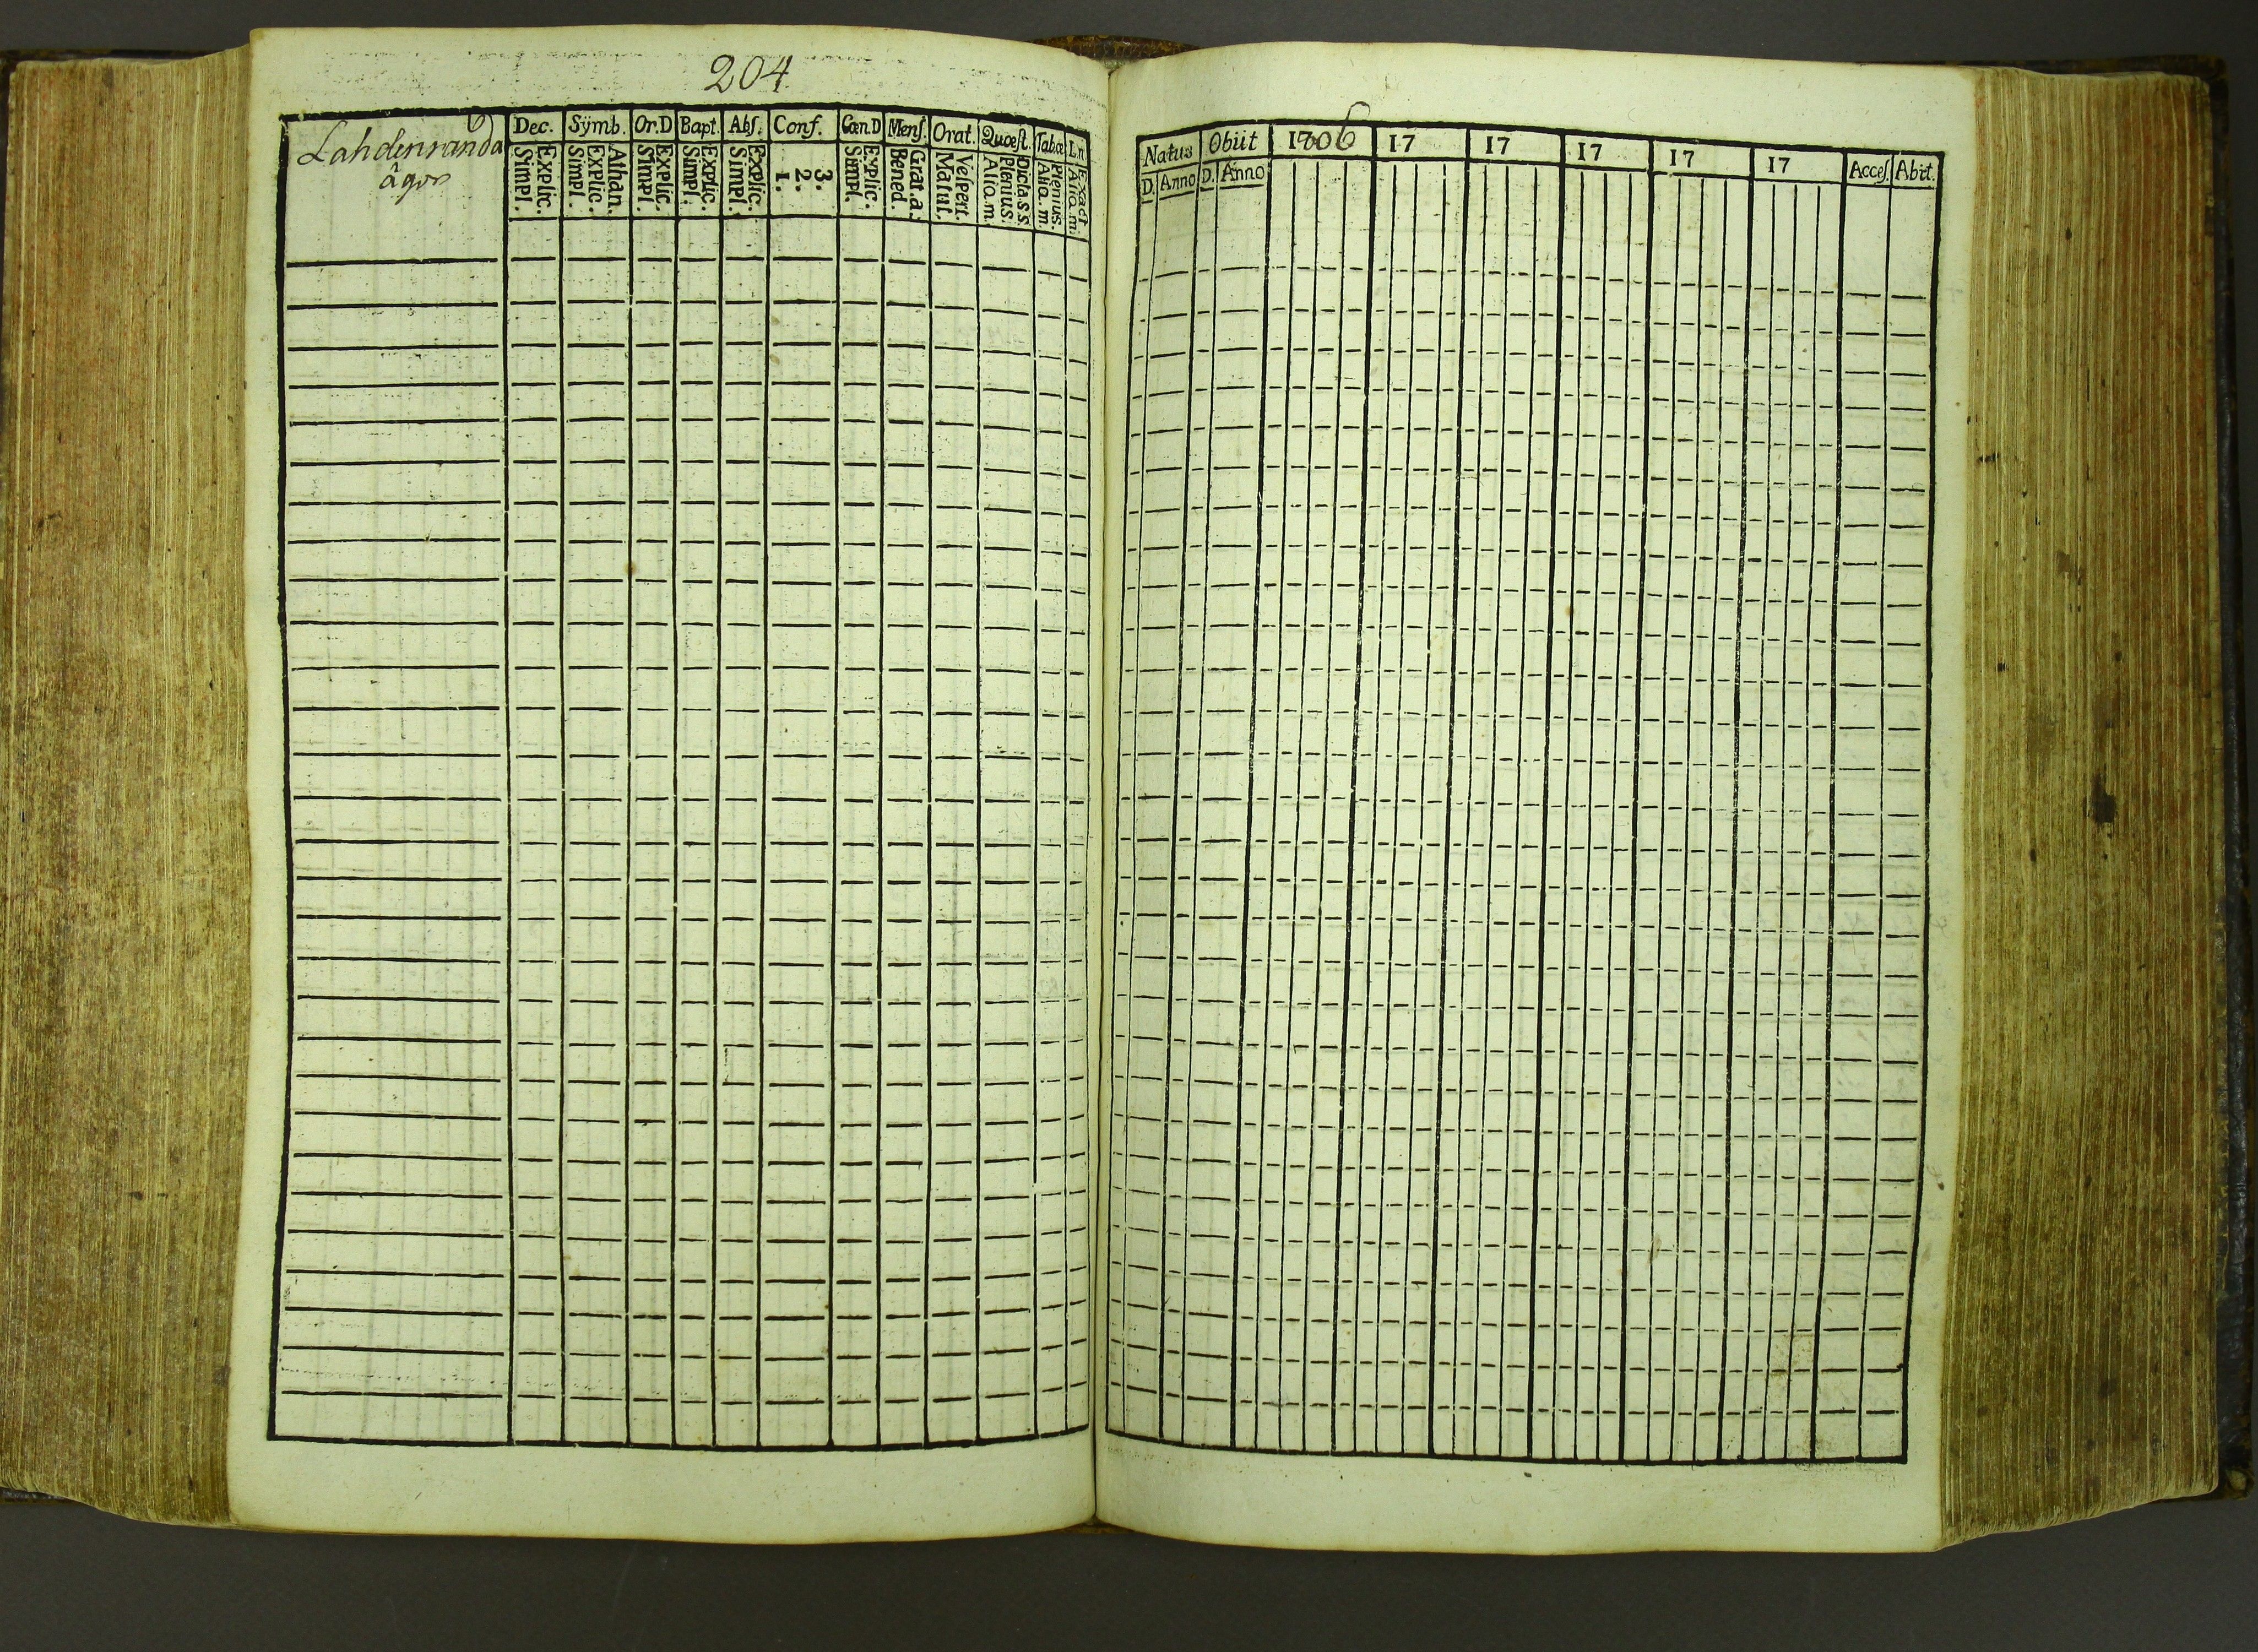 204
Lahdenranda
ägor
Dec. Sÿmb. Or.D Bapt. Abſ. Conf. Cœn.D Menſ. Orat. Quœſt. Tabœ Ln
Explic. Simpl. Athan. Explic. Simpl. Explic. Simpl. Explic. Simpl. Explic. Simpl. 3. 2. 1. Explic. Simpl. Grat.a. Bened. Veſpert. Matut. Dicta.s.s. Plenius. Alio.m. Plenius. Alio.m. Exact Alio.m.
Natus Obiit 1806 17 17 17 17 17 Acceſ. Abiit.
D. Anno D. Anno